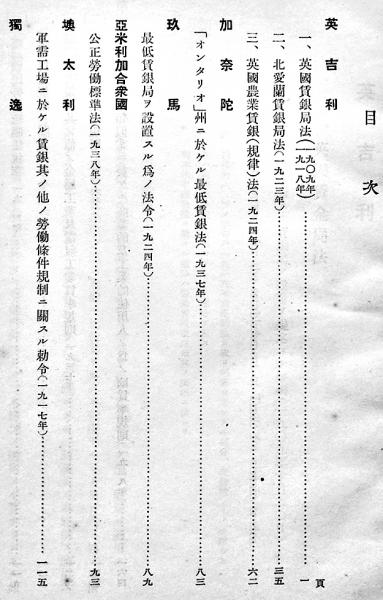 目次
頁
英吉利
一、英國賃銀局法(一九〇九年 一九一八年)……一
二、北愛蘭賃銀局法(一九二三年)……三五
三、英國農業賃銀(規律)法(一九二四年)……六二
加奈陀
「オンタリオ」州ニ於ケル最低賃銀法(一九三七年)……八三
玖馬
最低賃銀局ヲ設置スル爲ノ法令(一九三四年)……八九
亞米利加合衆國
公正勞働標準法(一九三八年)……九三
墺太利
軍需工場ニ於ケル賃銀其ノ他ノ勞働條件規制ニ關スル勅令(一九一七年)……一一五
獨逸